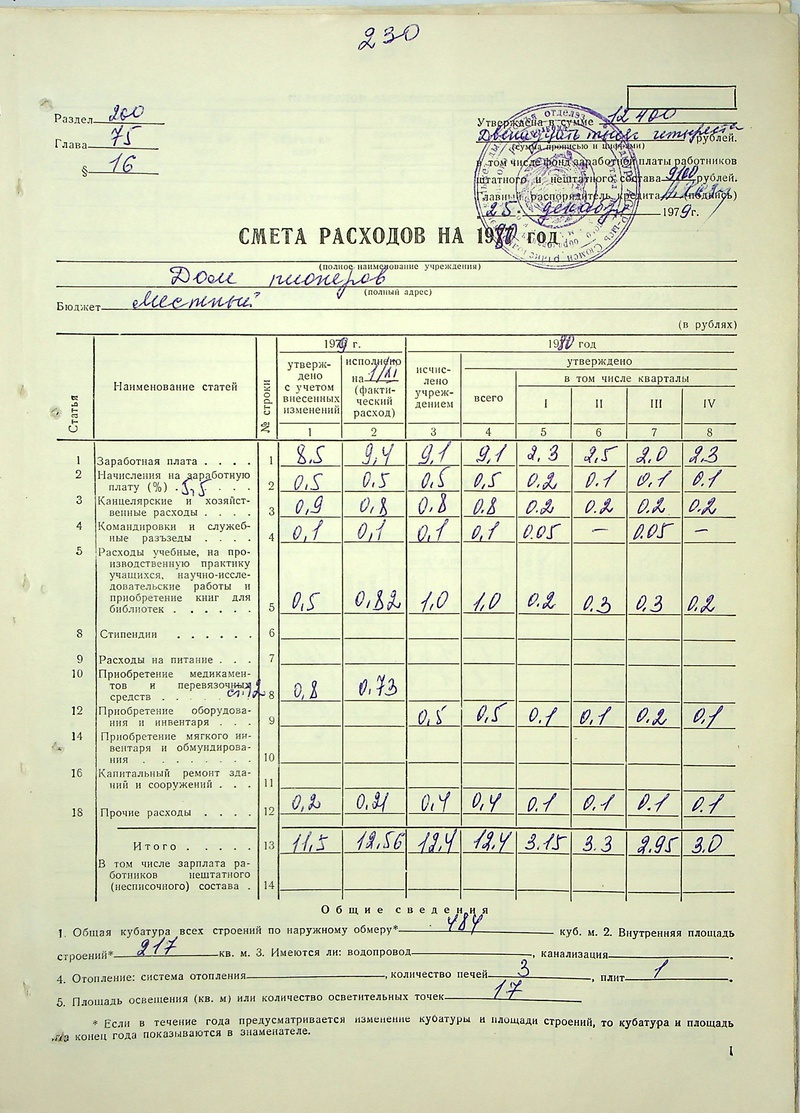 230
Раздел 200
Глава 75
§ 16
Утверждена в сумме 12400
Двенадцать тысяч четыреста рублей.
(сумма прописью и цифрами)
в том числе фонд заработной платы работников
штатного и нештатного состава 9100 рублей.
Главный распорядитель кредита (подпись)
25 декабря 1979 г.
СМЕТА РАСХОДОВ НА 1980 ГОД
(полное наименование учреждения)
Дом пионеров
(полный адрес)
Бюджет Местный
(в рублях)
Статья
Наименование статей
№ строки
1979 г.
1980 год
утверждено с учетом внесенных изменений
исполнено на 1/XI (фактический расход)
исчислено учреждением
утверждено
всего
в том числе кварталы
I II III IV
1 2 3 4 5 6 7 8
1 Заработная плата . . . . 1 8,5 9,4 9,1 9,1 2.3 2.5 2.0 2.3
2 Начисления на заработную
плату (%) . 5,5 . . . . 2 0,5 0,5 0,5 0,5 0.2 0.1 0.1 0.1
3 Канцелярские и хозяйст-
венные расходы . . . . 3 0,9 0,8 0,8 0.8 0.2 0.2 0.2 0.2
4 Командировки и служеб-
ные разъезды . . . . 4 0,1 0,1 0,1 0,1 0.05 — 0.05 —
5 Расходы учебные, на про-
изводственную практику
учащихся, научно-иссле-
довательские работы и
приобретение книг для
библиотек . . . . . . 5 0,5 0,82 1,0 1,0 0.2 0.3 0.3 0.2
8 Стипендии . . . . . . 6
9 Расходы на питание . . . 7
10 Приобретение медикамен-
тов и перевязочных
средств . . . ст.12 8 0,8 0,73
12 Приобретение оборудова-
ния и инвентаря . . . 9 0,5 0,5 0.1 0,1 0.2 0,1
14 Приобретение мягкого ин-
вентаря и обмундирова-
ния . . . . . . . . 10
16 Капитальный ремонт зда-
ний и сооружений . . . 11
18 Прочие расходы . . . . 12 0,2 0,21 0,4 0,4 0.1 0.1 0.1 0.1
Итого . . . . . 13 11,5 12,56 12,4 12,4 3.15 3.3 2.95 3.0
В том числе зарплата ра-
ботников нештатного
(несписочного) состава . 14
Общие сведения
1. Общая кубатура всех строений по наружному обмеру* 484 куб. м. 2. Внутренняя площадь
строений* 217 кв. м. 3. Имеются ли: водопровод , канализация .
4. Отопление: система отопления , количество печей 3 , плит 1 .
5. Площадь освещения (кв. м) или количество осветительных точек 17
* Если в течение года предусматривается изменение кубатуры и площади строений, то кубатура и площадь
на конец года показываются в знаменателе.
1